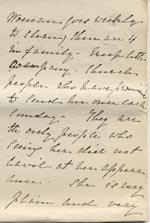 Woman goes weekly
to clean, there are 4
in family. Keep little
company. Church
people who have promised
to send her once each
Sunday. They are
the only people who
seeing her did not
cavil at her appear
ance. She is very
plain and very